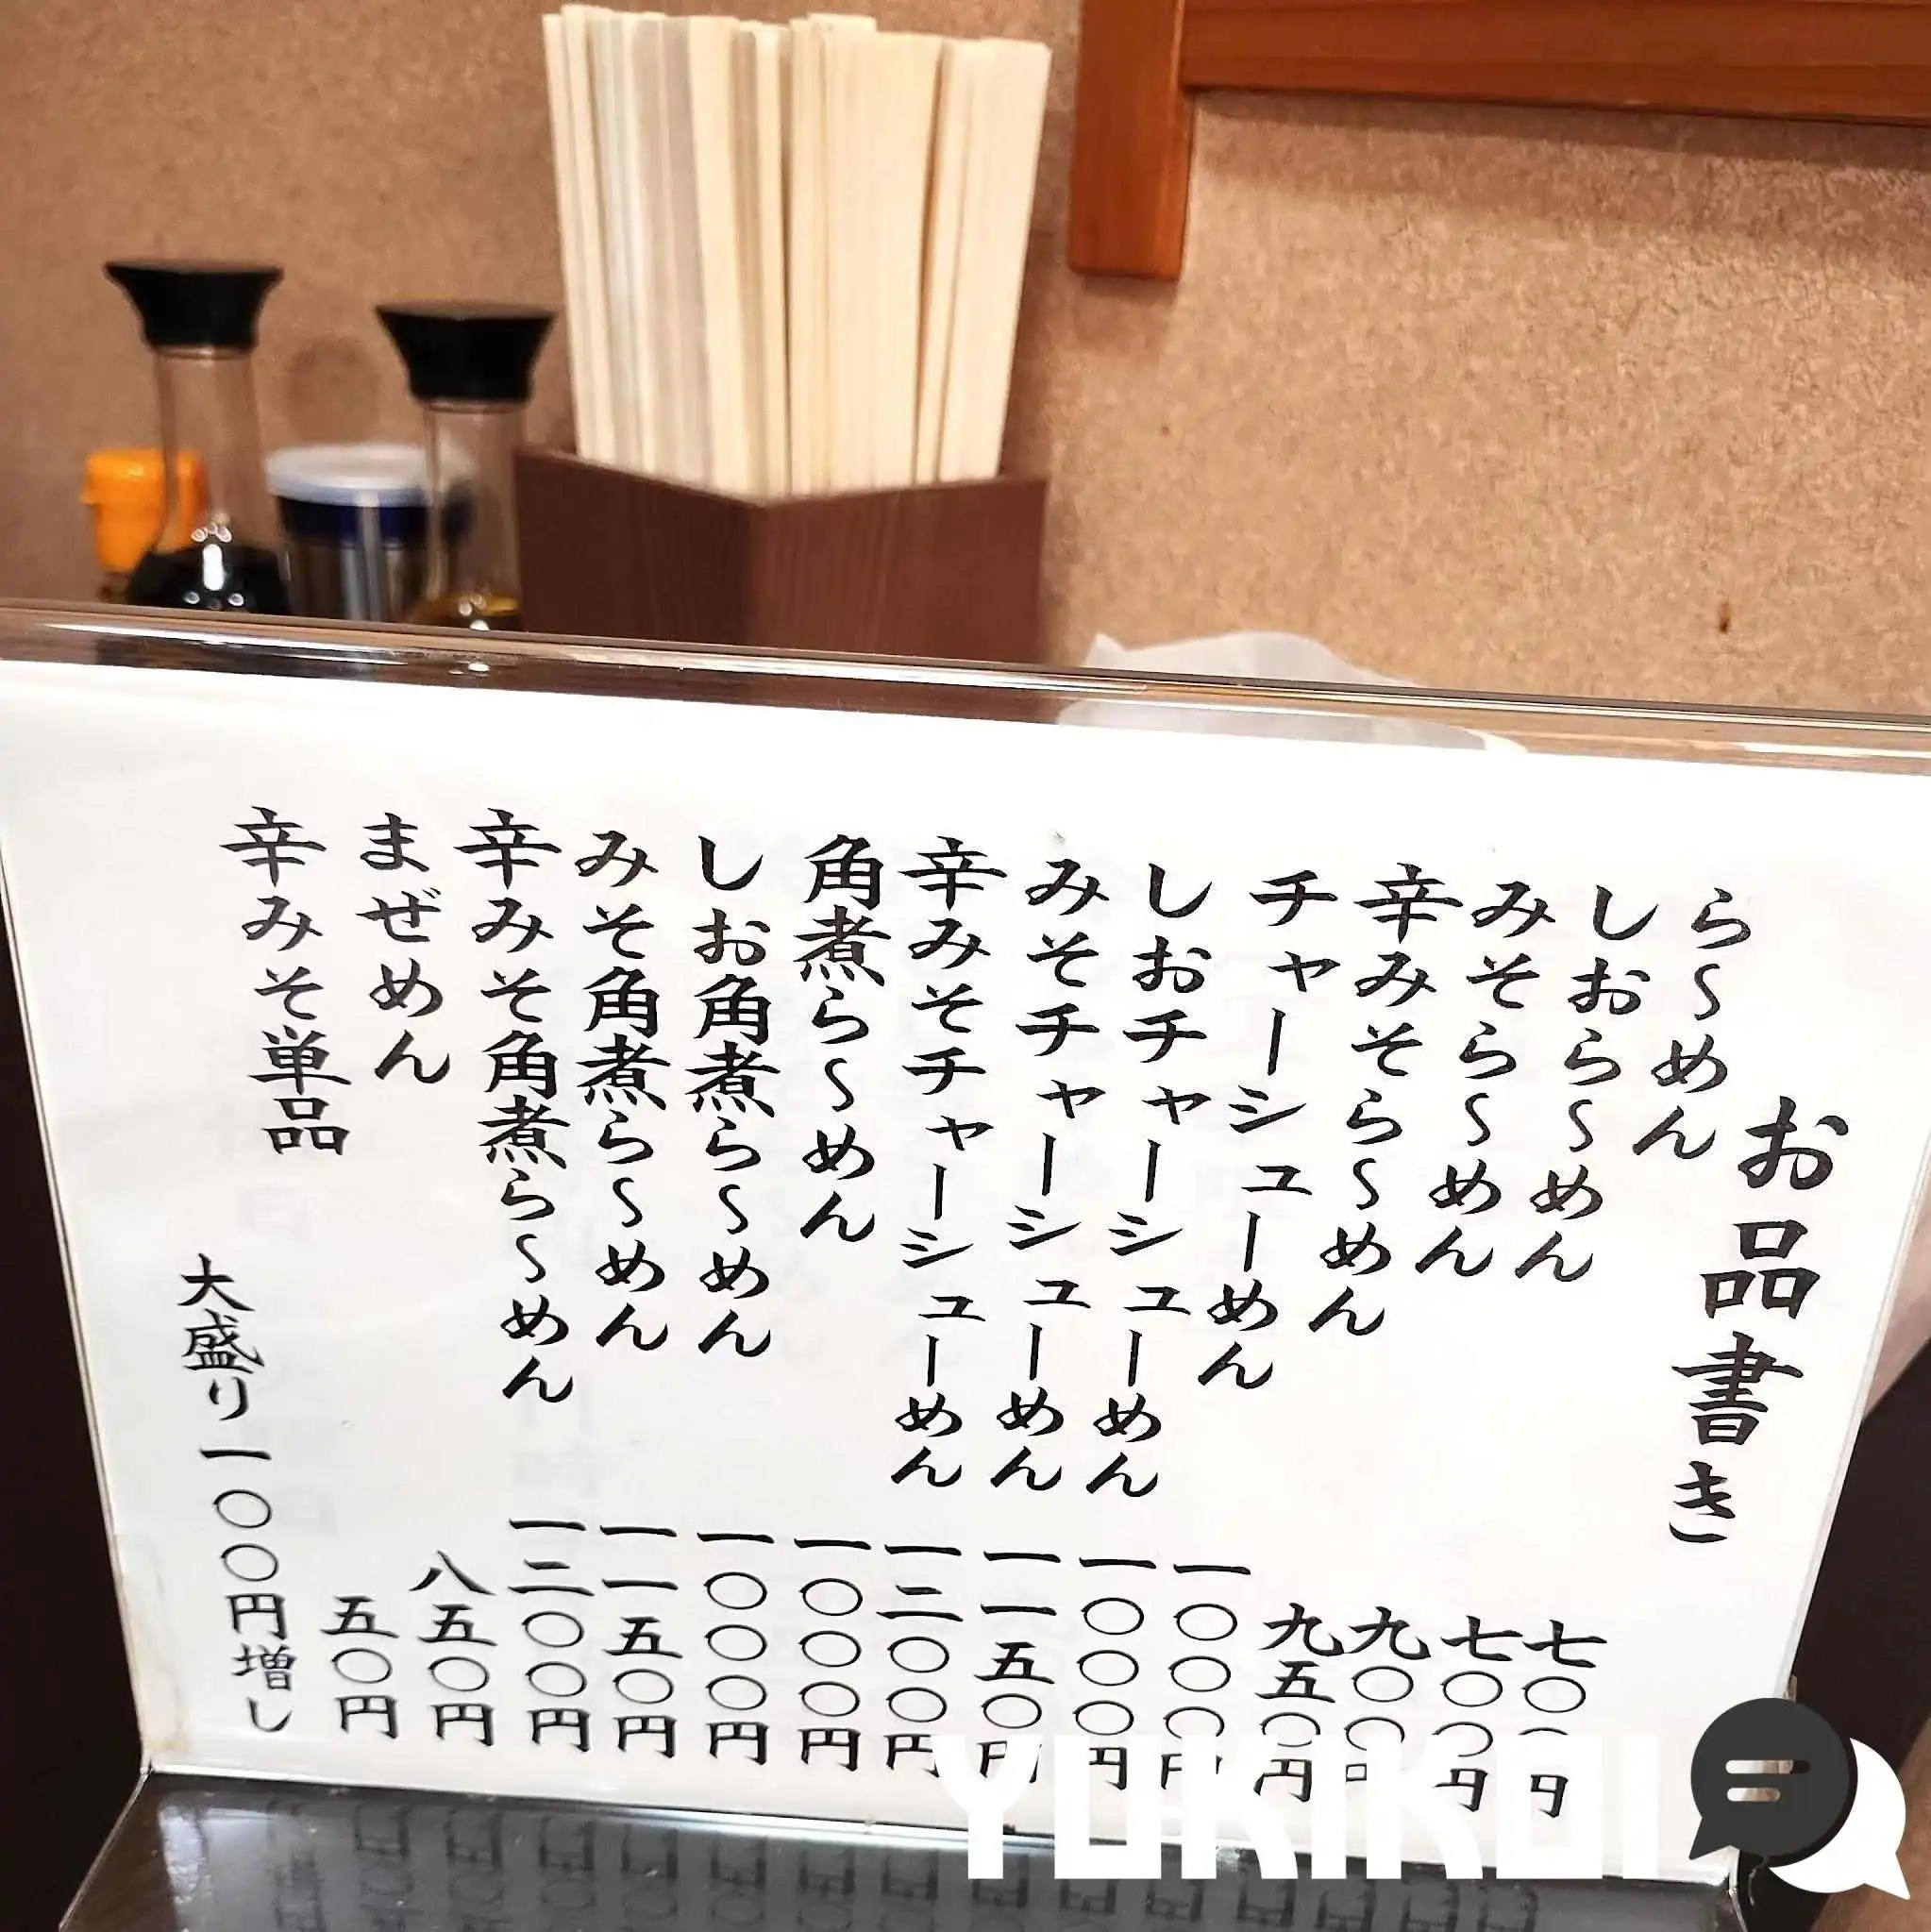 お品書き
ら〜めん 七〇〇円
しおら〜めん 七〇〇円
みそら〜めん 九〇〇円
辛みそら〜めん 九五〇円
チャーシューめん 一〇〇〇円
しおチャーシューめん 一〇〇〇円
みそチャーシューめん 一一五〇円
辛みそチャーシューめん 一二〇〇円
角煮ら〜めん 一〇〇〇円
しお角煮ら〜めん 一〇〇〇円
みそ角煮ら〜めん 一一五〇円
辛みそ角煮ら〜めん 一二〇〇円
まぜめん 八五〇円
辛みそ単品 五〇円
大盛り一〇〇円増し
YUKIKOI